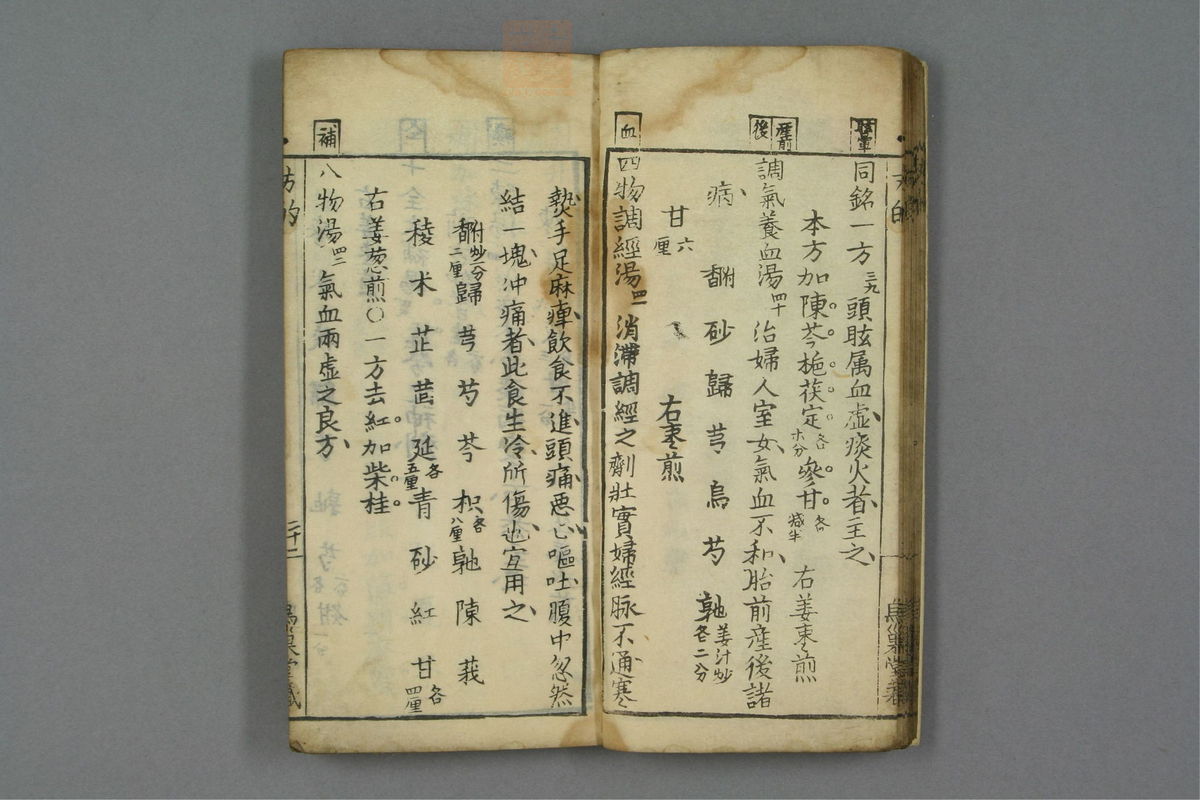 眩暈
同銘一方 三九 頭眩属血虚痰火者主之
本方加陳芩梔茯定各六分參甘各減半 右姜枣煎
産前
後
調氣養血湯 四十 治婦人室女氣血不和胎前産後諸
病 附香 砂 歸 芎 烏 芍 地 姜汁炒各二分
甘 六厘 右枣煎
血
四物調經湯 四一 消滯調經之劑壯實婦經脉不通寒
熱手足麻痺飲食不進頭痛悪心嘔吐腹中忽然
結一塊冲痛者此食生冷所傷也宜用之
附香 炒一分二厘 歸 芎 芍 芩 枳 各八厘 地 陳 莪
稜 术 芷 茴 延 各五厘 青 砂 紅 甘 各四厘
右姜葱煎○一方去紅加柴桂
補
八物湯 四二 氣血兩虚之良方
方的 二十一